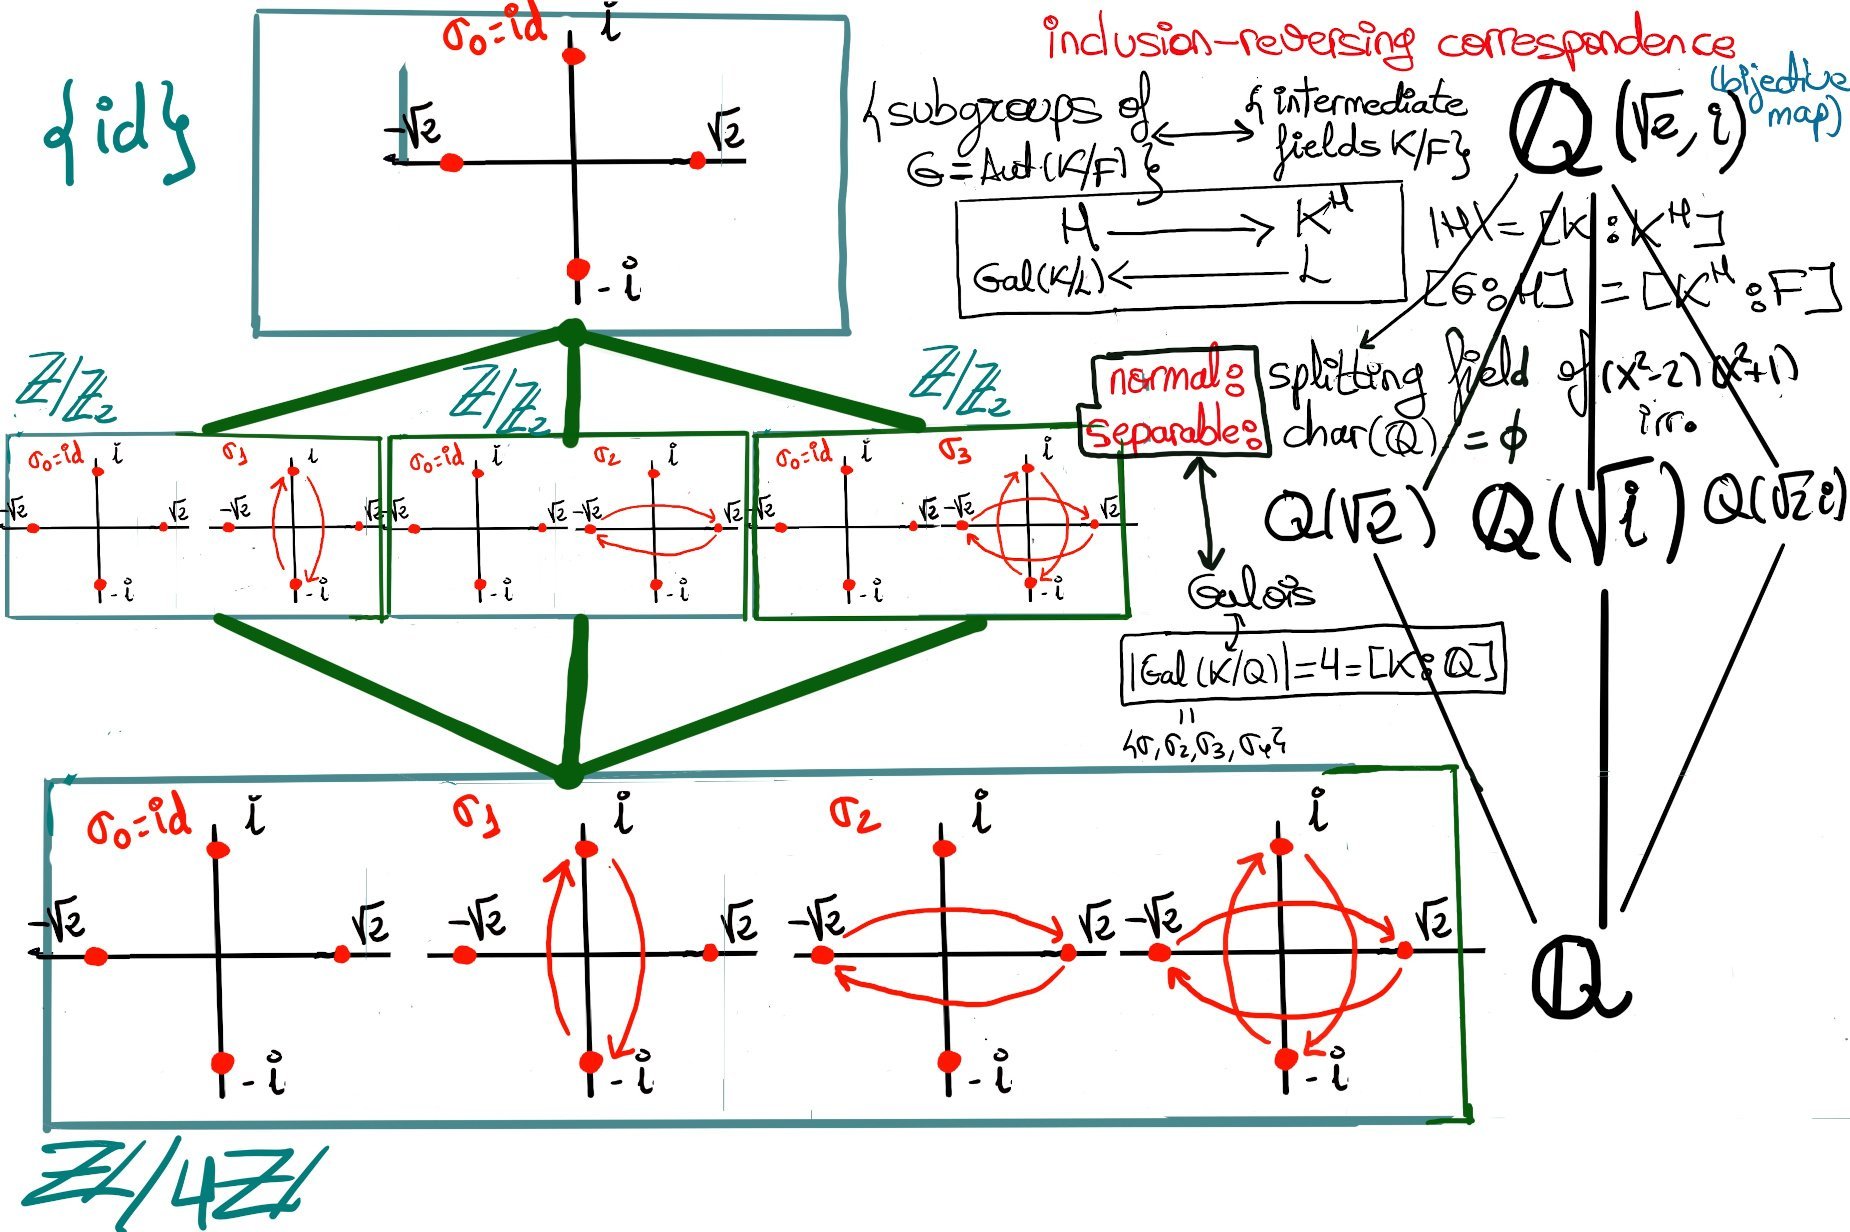 {id}
σ₀=id
i
-√2
√2
-i
inclusion-reversing correspondence
(bijective
map)
{subgroups of
G=Aut(K/F)}
{intermediate
fields K/F}
H
K^H
Gal(K/L)
L
|H|=[K:K^H]
[G:H]=[K^H:F]
normal:
separable:
splitting field of (x²-2)(x²+1)
irr.
char(Q)=ϕ
Galois
|Gal(K/Q)|=4=[K:Q]
"
{σ,σ₂,σ₃,σ₄}
Q(√2,i)
Q(√2)
Q(√i)
Q(√2i)
Q
Z/Z₂
σ₀=id
i
-√2
√2
-i
σ₁
i
-√2
√2
-i
Z/Z₂
σ₀=id
i
√2
-i
σ₂
i
-√2
√2
-i
Z/Z₂
σ₀=id
i
√2
-i
σ₃
i
-√2
√2
-i
σ₀=id
i
-√2
√2
-i
σ₁
i
-√2
√2
-i
σ₂
i
-√2
√2
-i
i
-√2
√2
-i
Z/4Z